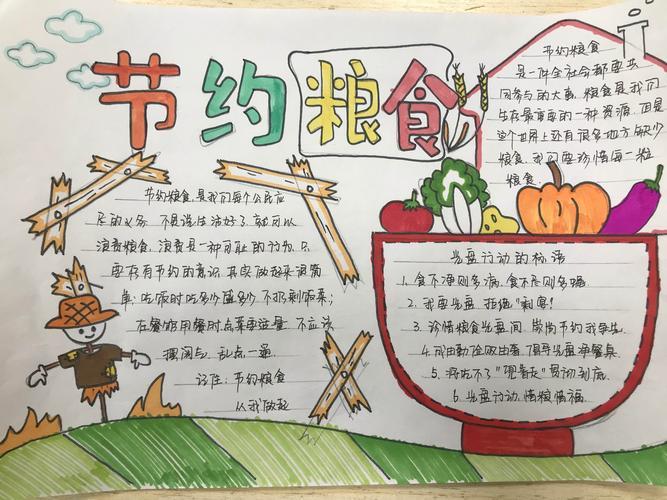 节约粮食
节约粮食
是一件全社会都要共
同参与的大事,粮食是我们
生存最重要的一种资源,但是
这个世界上还有很多地方缺少
粮食,我们要珍惜每一粒
粮食.
节约粮食,是我们每个公民应
尽的义务,不是说生活好了,就可以
浪费粮食,浪费是一种可耻的行为,只
要存有节约的意识,其实做起来很简
单:吃饭时吃多少盛多少,不扔剩饭菜;
在餐馆用餐时点菜要适量,不应该
摆阔气,乱点一通.
记住:节约粮食
从我做起
光盘行动的标语
1. 食不净则多病,食不尽则多
2. 我要光盘,拒绝"剩"宴!
3. 珍惜粮食光盘间,
4. 成由勤俭败由奢,倡导光盘净餐桌.
5. 贯彻到底.
6. 光盘行动,惜粮惜福.